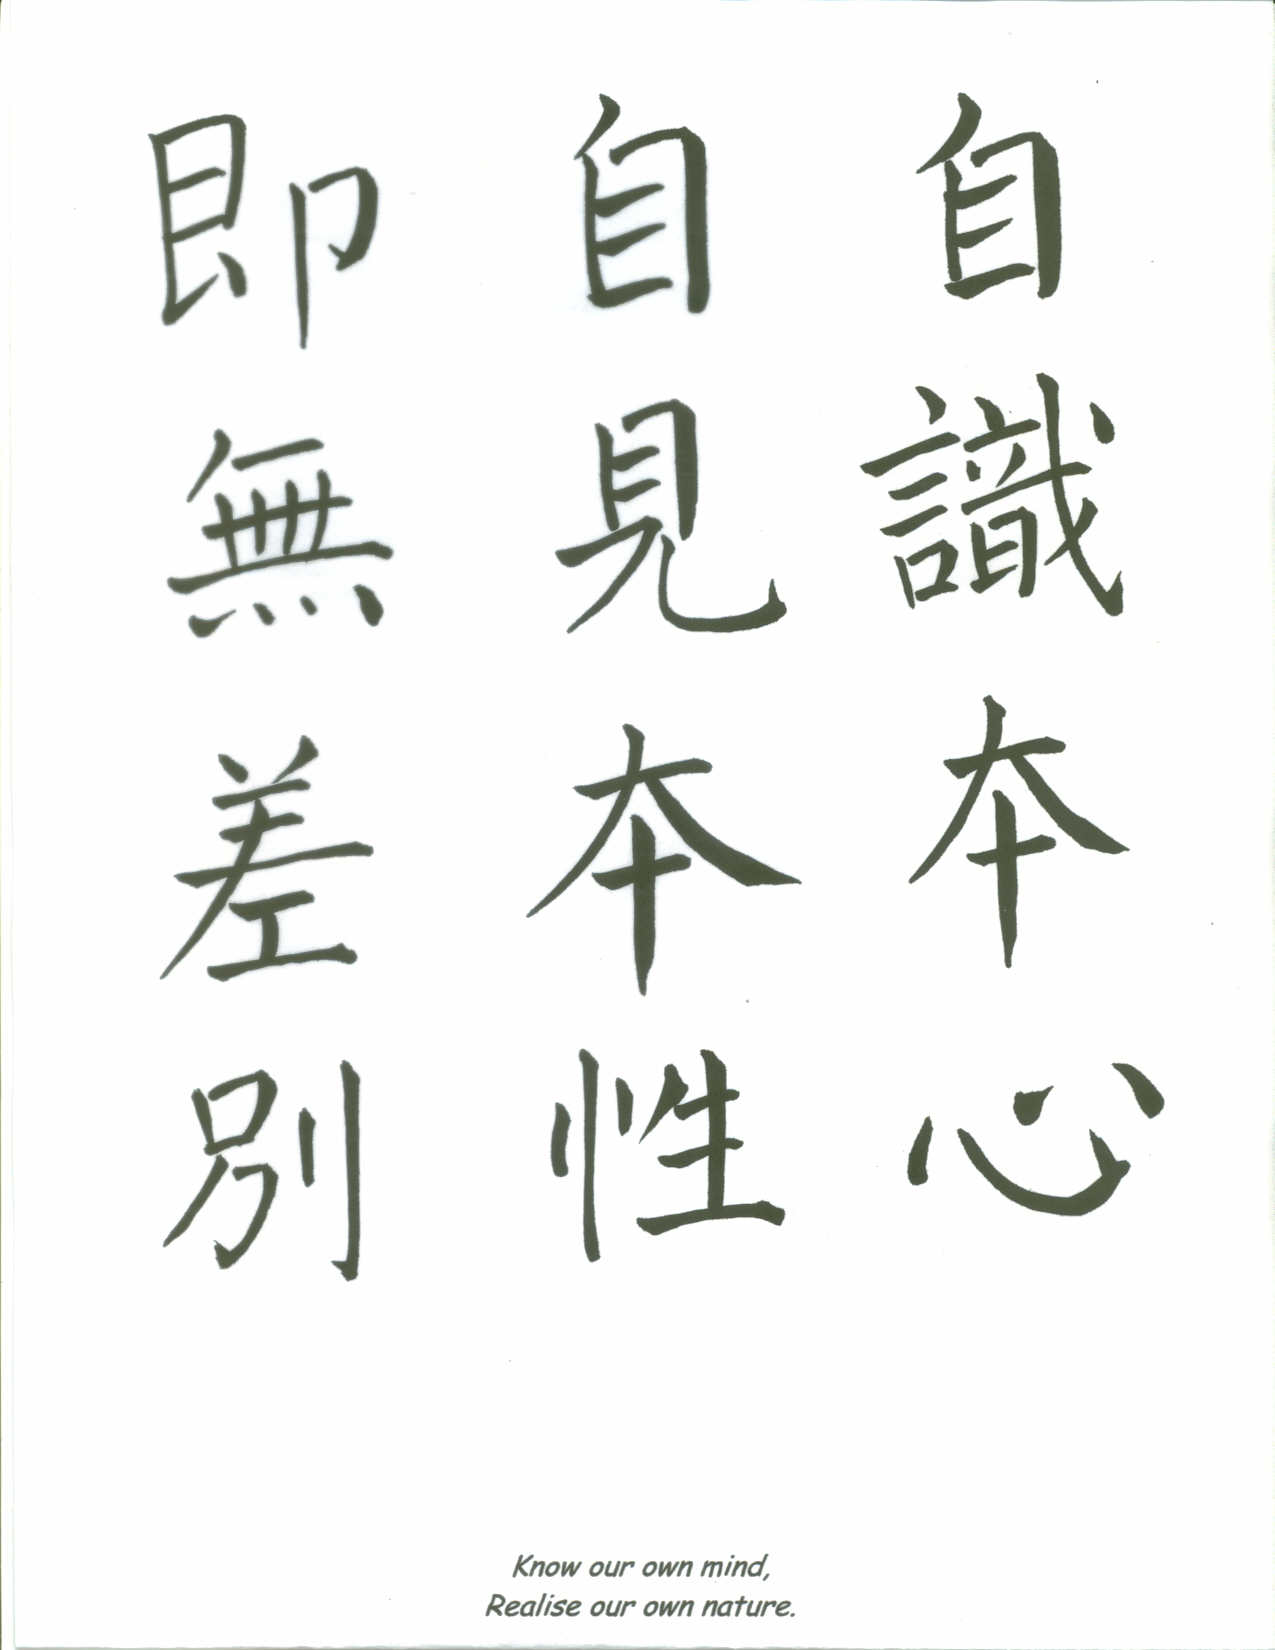 自識本心
自見本性
即無差別
Know our own mind,
Realise our own nature.